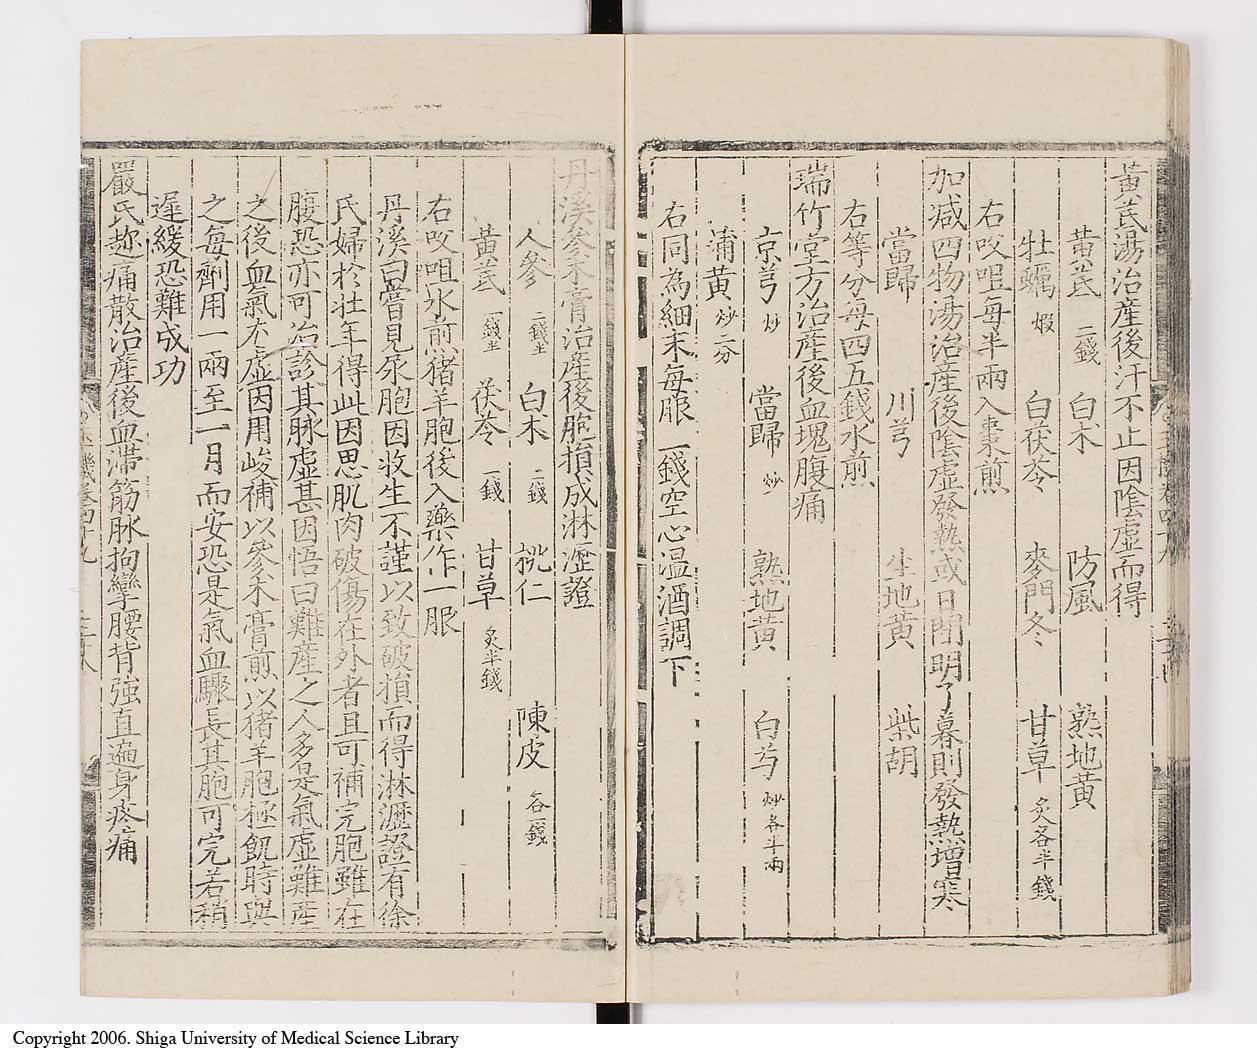 黄芪湯治産後汗不止因陰虚而得
黄芪 二錢 白朮 防風 熟地黄
牡蠣 煆 白茯苓 麥門冬 甘草 炙各半錢
右㕮咀每半兩入棗煎
加减四物湯治産後陰虚發熱或日間明了暮則發熱增寒
當歸 川芎 生地黄 柴胡
右等分每四五錢水煎
瑞竹堂方治産後血塊腹痛
京芎 炒 當歸 炒 熟地黄 白芍 炒各半兩
蒲黄 炒二分
右同為細末每服一錢空心温酒調下
丹溪參朮膏治産後胞損成淋瀝證
人參 二錢半 白朮 二錢 桃仁 陳皮 各一錢
黄芪 一錢半 茯苓 一錢 甘草 炙半錢
右㕮咀水煎猪羊胞後入藥作一服
丹溪曰嘗見尿胞因收生不謹以致破損而得淋瀝證有徐
氏婦於壯年得此因思肌肉破傷在外者且可補完胞雖在
腹恐亦可治診其脉虚甚因悟曰難産之人多是氣虚難産
之後血氣尤虚因用峻補以參朮膏煎以猪羊胞極飢時與
之每劑用一兩至一月而安恐是氣血驟長其胞可完若稍
遲緩恐難成功
嚴氏趂痛散治産後血滯筋脉拘攣腰背强直遍身疼痛
Copyright 2006. Shiga University of Medical Science Library